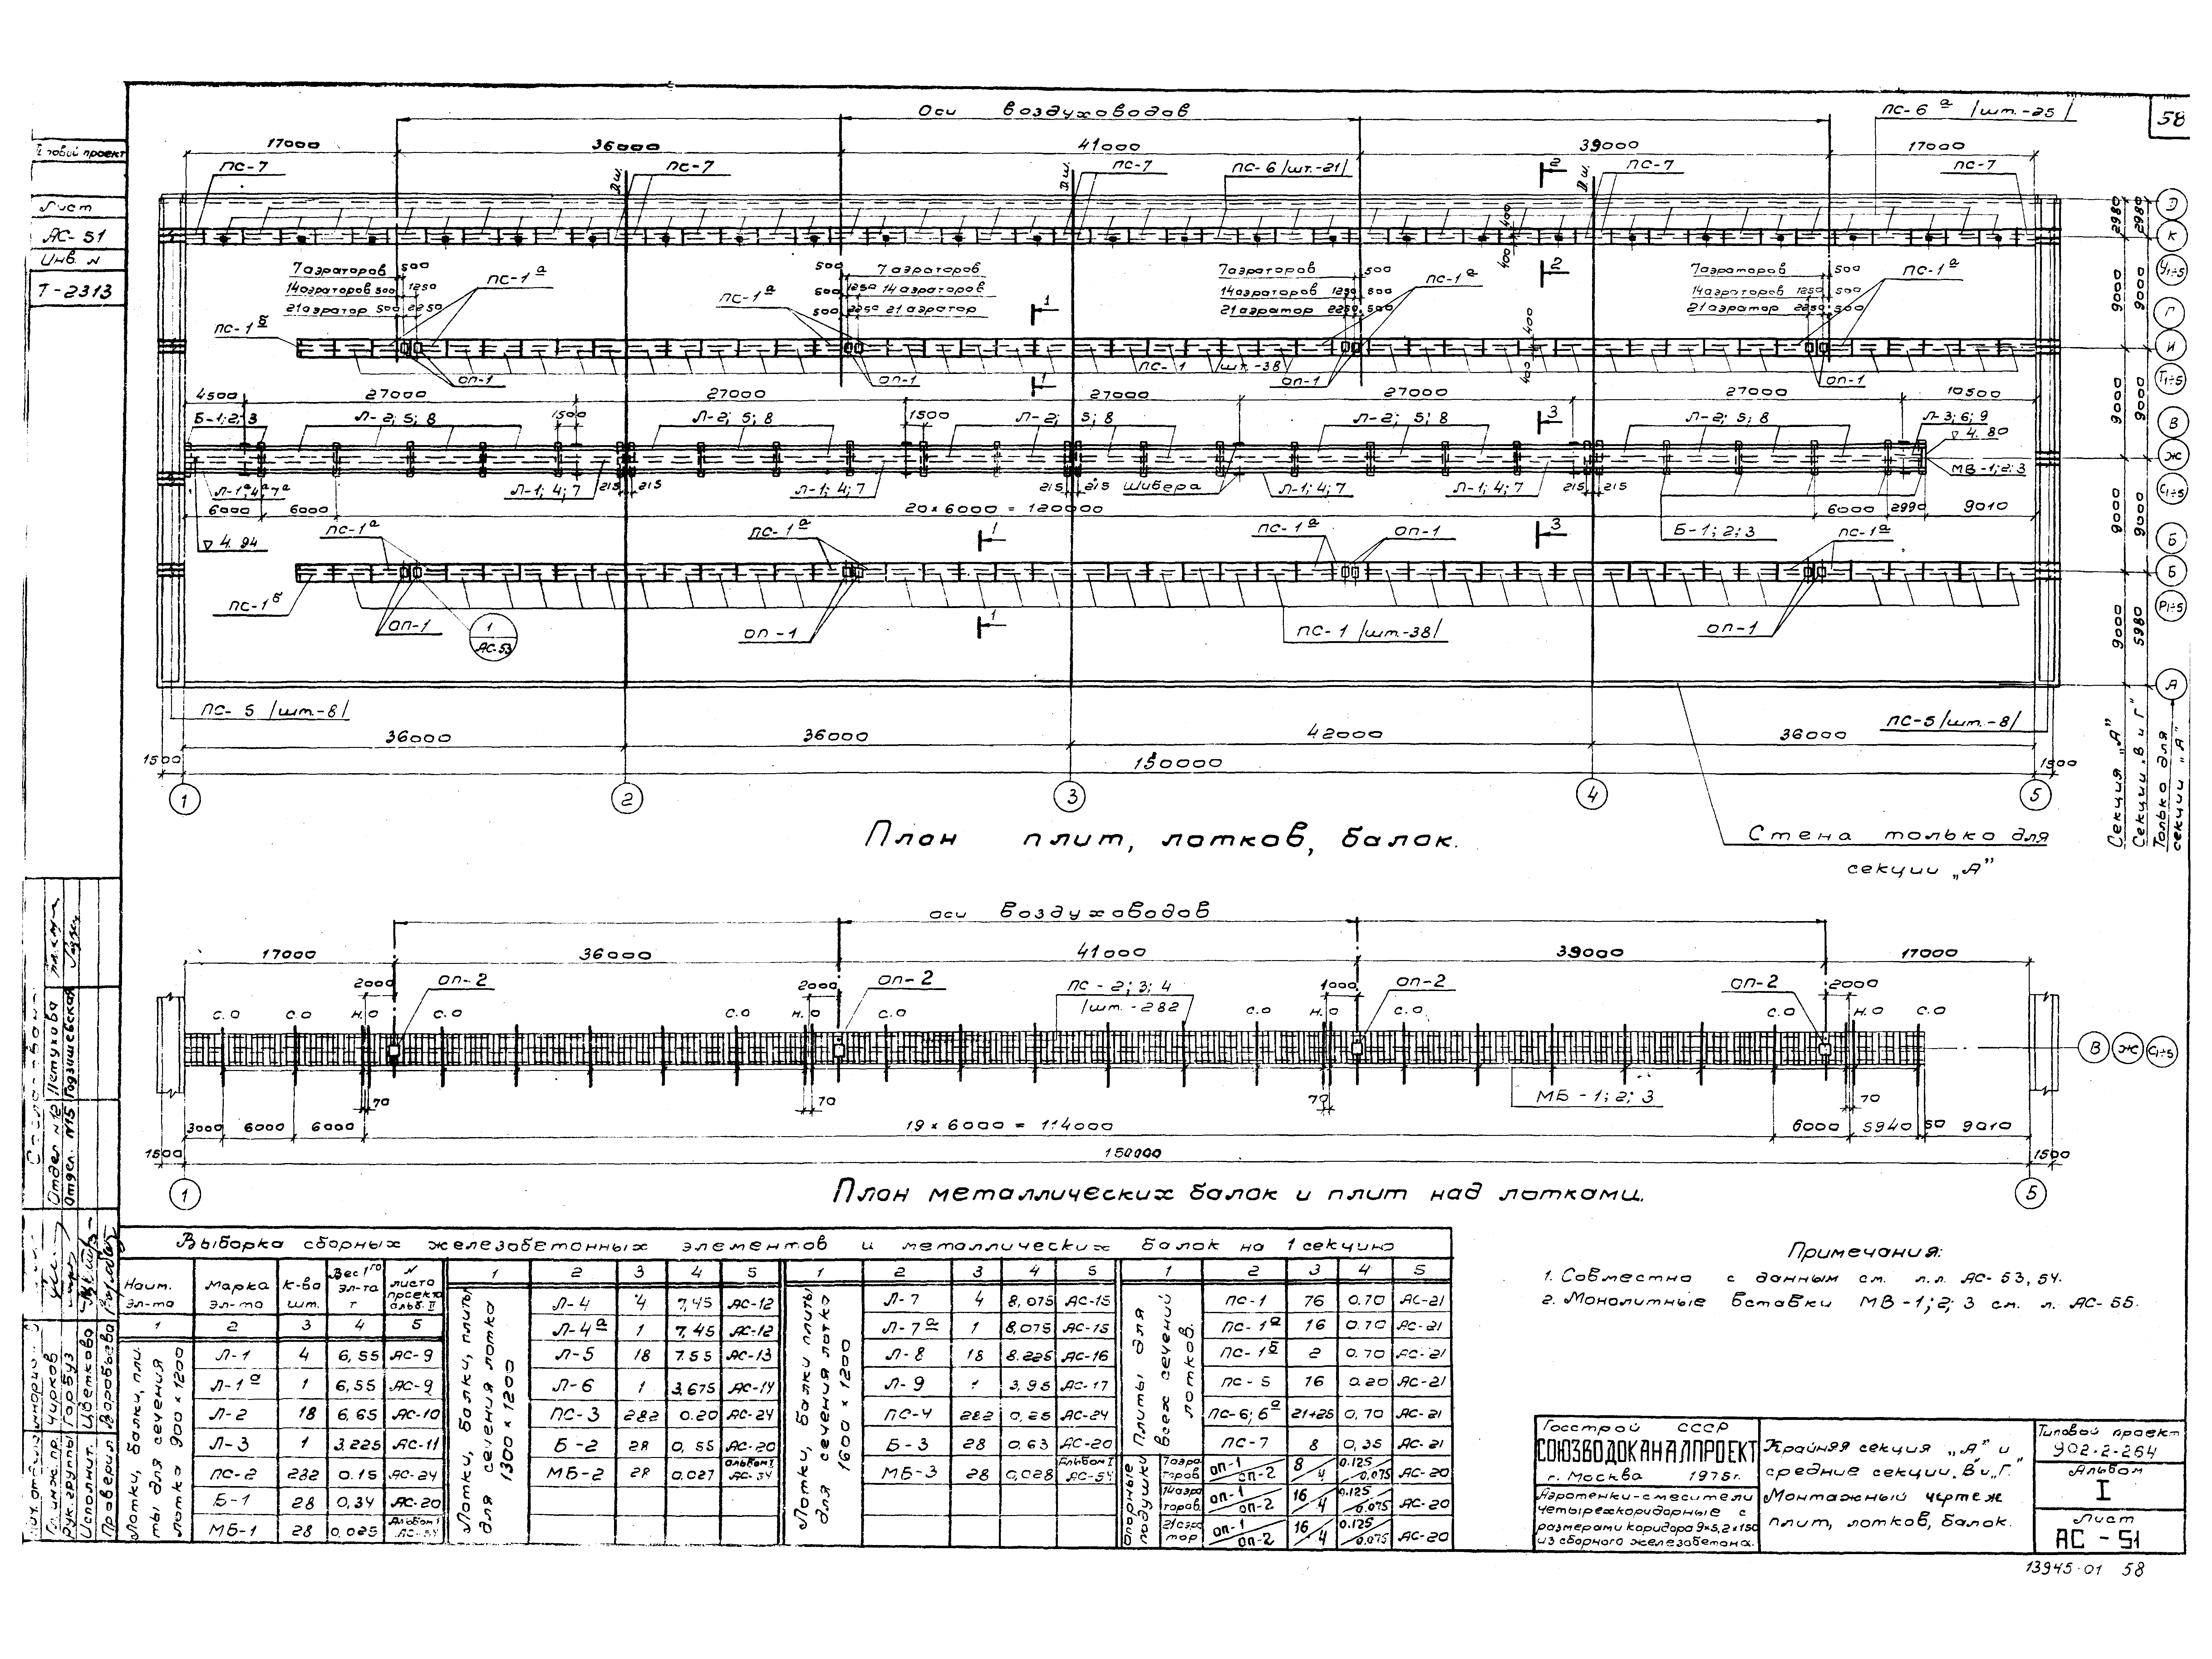 58
Оси воздуховодов
ПС-6а /шт.-25/
17000 36000 41000 39000 17000
ПС-7 ПС-7 ПС-7 ПС-6 /шт.-21/ ПС-7 ПС-7
Д.ш. Д.ш. Д.ш.
2
400 400
2
7 аэраторов 500 500 7 аэраторов 7 аэраторов 500 7 аэраторов 500
14 аэраторов 500 1250 500 1250 14 аэраторов 14 аэраторов 1250 500 14 аэраторов 1250 500
21 аэратор 500 2250 500 2250 21 аэратор 21 аэратор 2250 500 21 аэратор 2250 500
ПС-1а ПС-1а ПС-1а ПС-1а
ПС-1б
1
400 400
ОП-1 ОП-1 1 ПС-1 /шт.-38/ ОП-1 ОП-1
4500 27000 27000 27000 27000 27000 10500
Б-1;2;3 Л-2; 5; 8 1500 Л-2; 5; 8 1500 Л-2; 5; 8 Л-2; 5; 8 3 Л-2; 5; 8 Л-3; 6; 9
4.80
МВ-1;2;3
Л-1а;4а;7а Л-1; 4; 7 215 215 Л-1; 4; 7 215 215 Шибера Л-1; 4; 7 Л-1; 4; 7 215 215
6000 6000 20 × 6000 = 120000 6000 2990 9010
4.94 ПС-1а ПС-1а 1 ПС-1а ОП-1 3 Б-1; 2; 3 ПС-1а
ПС-1б ОП-1 1 АС-53 ОП-1 1 ПС-1 /шт.-38/ ОП-1
ПС-5 /шт-8/ ПС-5 /шт-8/
36000 36000 42000 36000
1500 150000 1500
1 2 3 4 5
План плит, лотков, балок.
Стена только для
секции „А”
2980 2980
9000 9000
9000 9000
9000 9000
9000 5980
Секция „А”
Секции „В и Г”
Только для
секции „А”
Д
К
У1÷5
Г
И
Т1÷5
В
Ж
С1÷5
Б
Б
Р1÷5
А
оси воздуховодов
17000 36000 41000 39000 17000
2000 ОП-2 2000 ОП-2 ПС-2; 3; 4 1000 ОП-2 ОП-2 2000
/шт.-282
С.О С.О Н.О С.О С.О Н.О С.О С.О Н.О С.О С.О Н.О С.О
В Ж С1÷5
70 70 70 МБ-1; 2; 3 70
3000 6000 6000 19 × 6000 = 114000 6000 5940 50 9010
1500 150000 1500
1 5
План металлических балок и плит над лотками.
Выборка сборных железобетонных элементов и металлических балок на 1 секцию
Наим. эл-та Марка эл-та К-во шт. Вес 1го эл-та т N листа проекта альб. II
1 2 3 4 5
Лотки, балки, плиты для сечения лотка 900 × 1200
Л-1 4 6,55 АС-9
Л-1а 1 6,55 АС-9
Л-2 18 6,65 АС-10
Л-3 1 3.225 АС-11
ПС-2 232 0.15 АС-24
Б-1 28 0,34 АС-20
МБ-1 28 0,025 Альбом I АС-54
1 2 3 4 5
Лотки, балки, плиты для сечения лотка 1300 × 1200
Л-4 4 7,45 АС-12
Л-4а 1 7,45 АС-12
Л-5 18 7.55 АС-13
Л-6 1 3,675 АС-14
ПС-3 282 0.20 АС-24
Б-2 28 0,55 АС-20
МБ-2 28 0.027 Альбом I АС-54
1 2 3 4 5
Лотки, балки плиты для сечения лотка 1600 × 1200
Л-7 4 8,075 АС-15
Л-7а 1 8,075 АС-15
Л-8 18 8.225 АС-16
Л-9 1 3,95 АС-17
ПС-4 282 0,25 АС-24
Б-3 28 0.63 АС-20
МБ-3 28 0,028 Альбом I АС-54
1 2 3 4 5
Плиты для всех сечений лотков.
ПС-1 76 0.70 АС-21
ПС-1а 16 0.70 АС-21
ПС-1б 2 0.70 АС-21
ПС-5 16 0.20 АС-21
ПС-6; 6а 21+25 0,70 АС-21
ПС-7 8 0,35 АС-21
Опорные подушки
7 аэраторов ОП-1 ОП-2 8 4 0.125 0.075 АС-20
14 аэраторов ОП-1 ОП-2 16 4 0.125 0.075 АС-20
21 аэратор ОП-1 ОП-2 16 4 0.125 0.075 АС-20
Примечания:
1. Совместно с данным см. л.л. АС-53, 54.
2. Монолитные вставки МВ-1; 2; 3 см. л. АС-55.
Госстрой СССР
СОЮЗВОДОКАНАЛПРОЕКТ
г. Москва 1975г.
Аэротенки-смесители
четырехкоридорные с
размерами коридора 9×5,2×150
из сборного железобетона.
Крайняя секция „А” и
средние секции „В и „Г”
Монтажный чертеж
плит, лотков, балок.
Типовой проект
902-2-264
Альбом
I
Лист
АС-51
13945-01 58
Типовой проект
Лист
АС-51
Инв. N
Т-2313
Согласовано
Отдел N12 Петухова
Отдел. N15 Годзишевская
Гл. инж. пр. Чурков
Рук. группы Горбуз
Исполнит. Цветкова
Проверил Воробьева